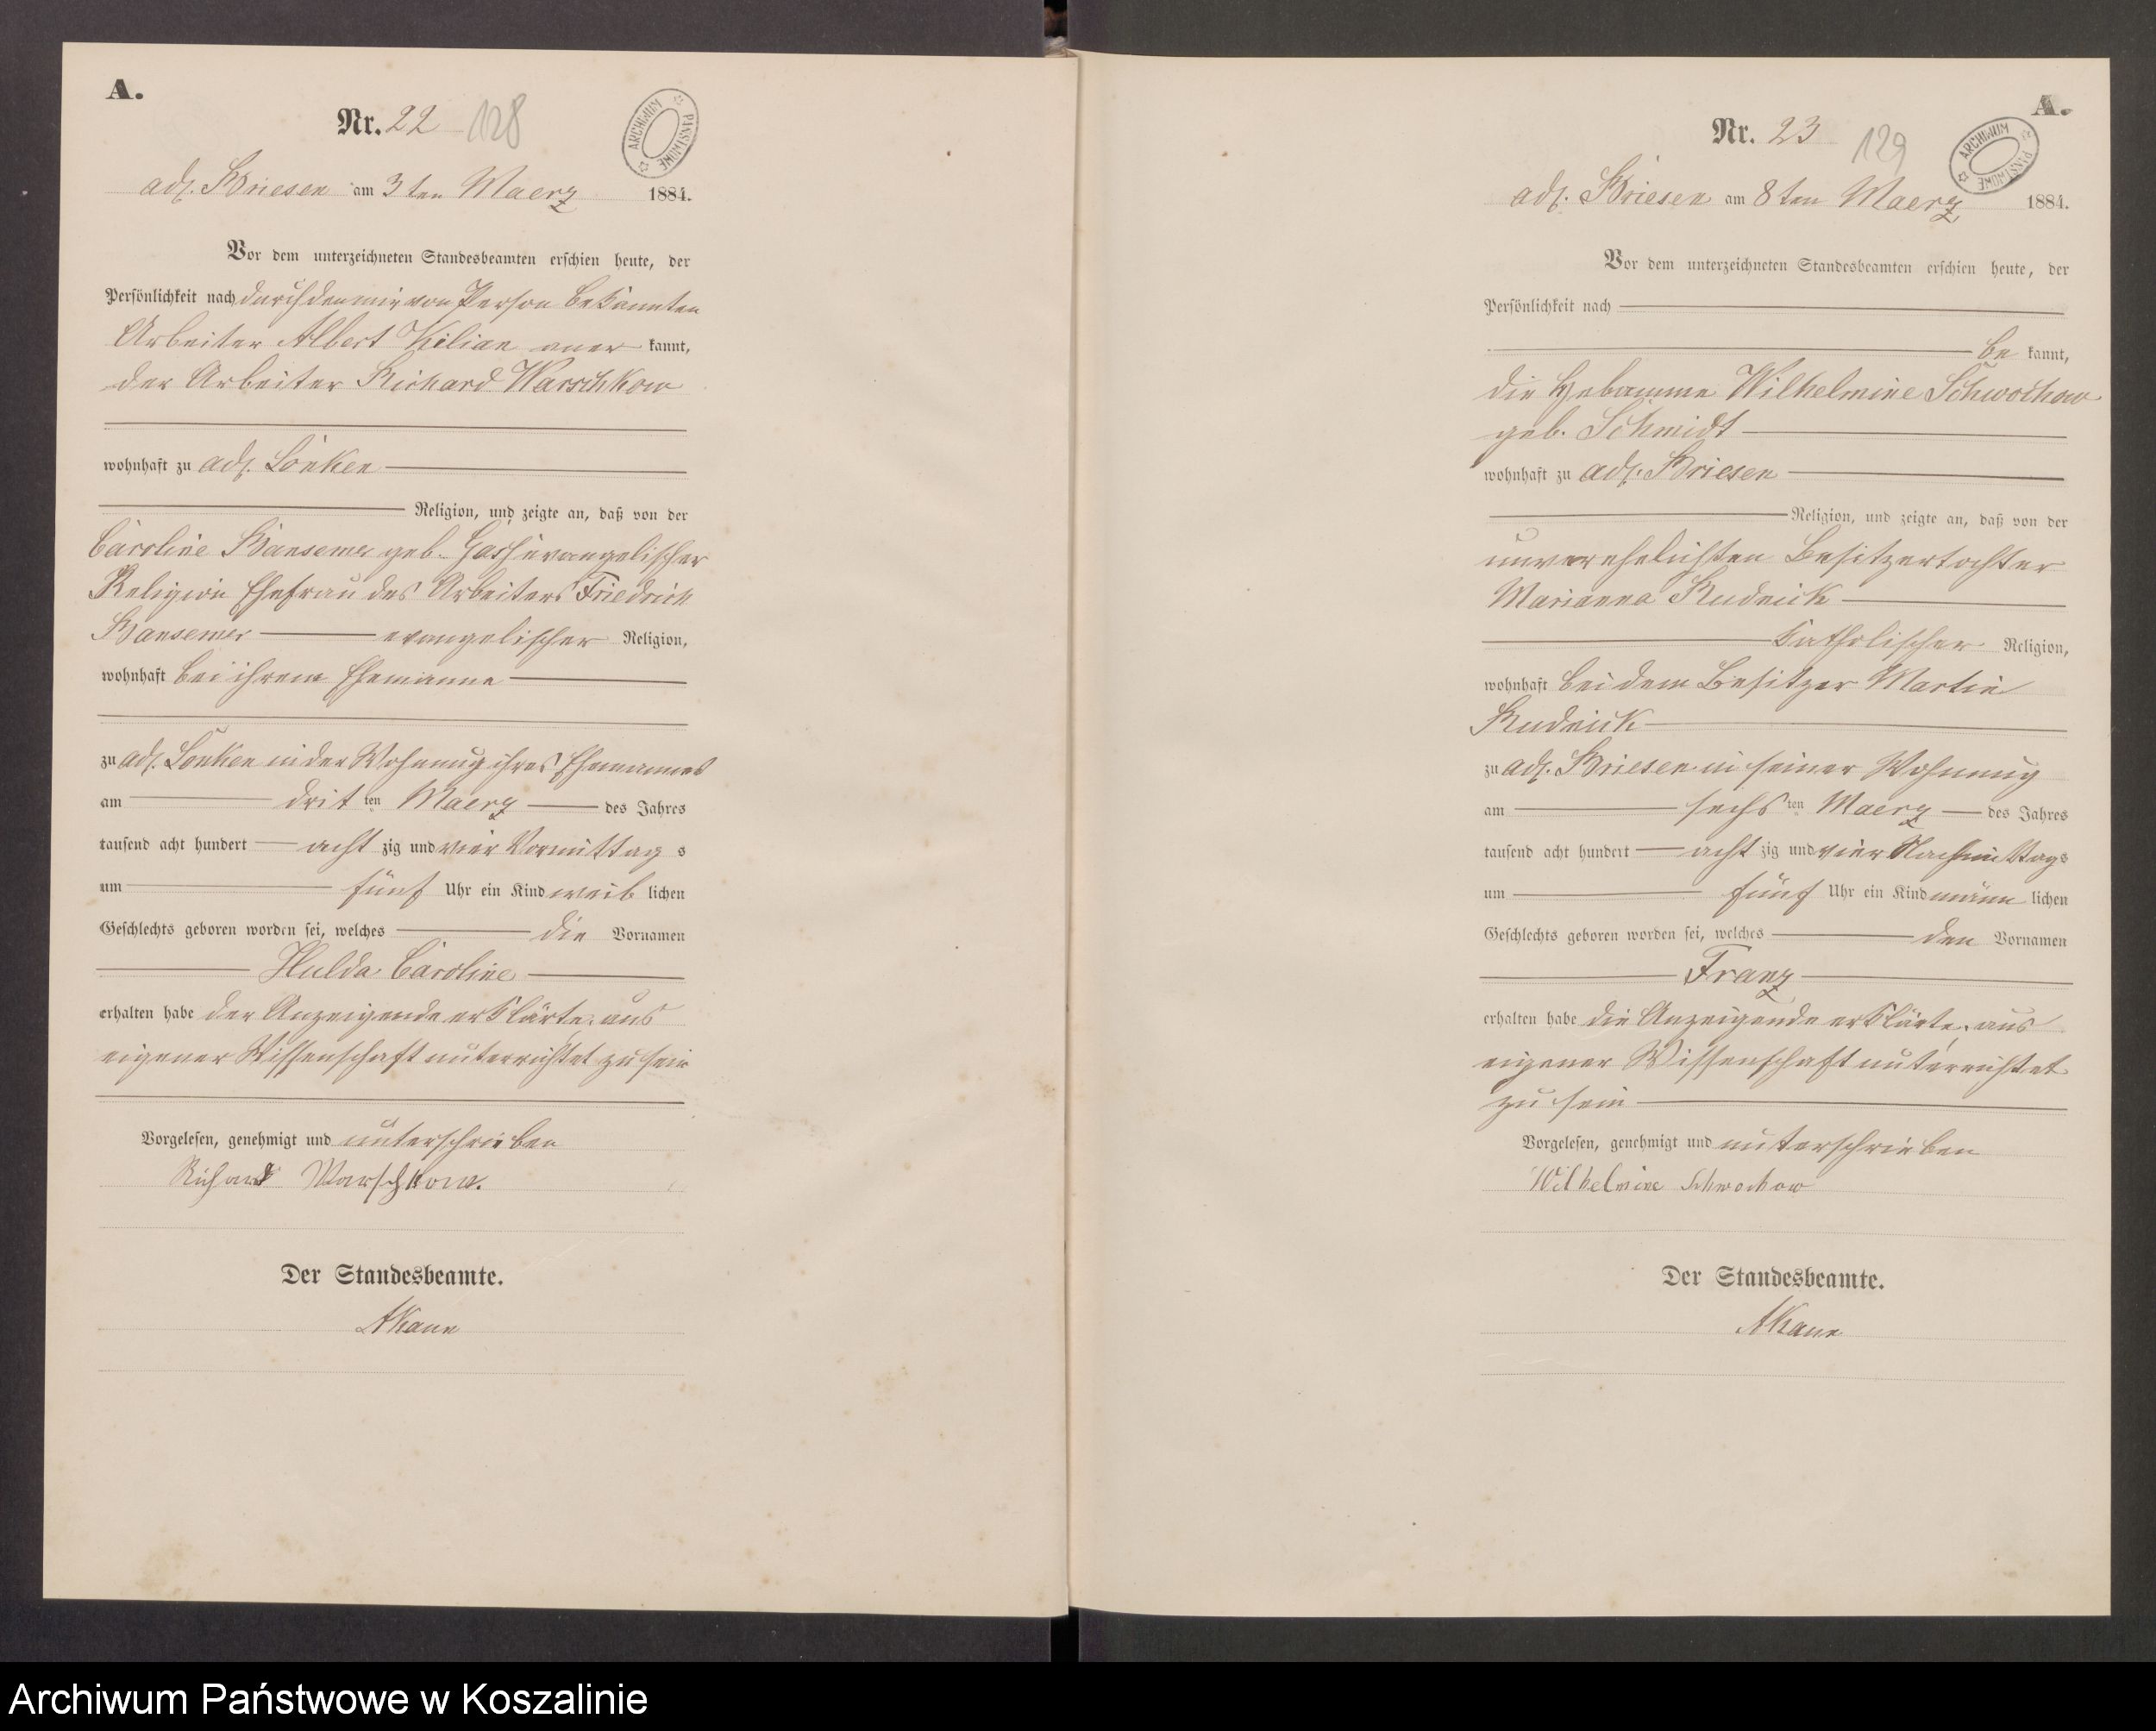 A.
Nr. 22
128
ARCHIWUM PAŃSTWOWE
adl. Briesen am 3ten Maerz 1884.
Vor dem unterzeichneten Standesbeamten erschien heute, der
Persönlichkeit nach durch den mir von Person bekannten
Arbeiter Albert Kilian aner kannt,
der Arbeiter Richard Warschkow
wohnhaft zu adl. Lonken
Religion, und zeigte an, daß von der
Caroline Bansemer geb. evangelischer
Religion Ehefrau des Arbeiters Friedrich
Bansemer evangelischer Religion,
wohnhaft bei ihrem Ehemanne
zu adl. Lonken in der Wohnung ihres Ehemannes
am drit ten Maerz des Jahres
tausend acht hundert acht zig und vier Vormittag s
um fünf Uhr ein Kind weib lichen
Geschlechts geboren worden sei, welches die Vornamen
Hulda Caroline
erhalten habe der Anzeigende erklärte, aus
eigener Wissenschaft unterrichtet zu sein
Vorgelesen, genehmigt und unterschrieben
Richard Warschkow.
Der Standesbeamte.
A.
Nr. 23
129
ARCHIWUM PAŃSTWOWE
adl. Briesen am 8ten Maerz 1884.
Vor dem unterzeichneten Standesbeamten erschien heute, der
Persönlichkeit nach
be kannt,
die Hebamme Wilhelmine Schwochow
geb. Schmidt
wohnhaft zu adl. Briesen
Religion, und zeigte an, daß von der
unverehelichten Besitzertochter
Marianna Rudnick
katholischer Religion,
wohnhaft bei dem Besitzer Martin
Rudnick
zu adl. Briesen in seiner Wohnung
am sechs ten Maerz des Jahres
tausend acht hundert acht zig und vier Nachmittags
um fünf Uhr ein Kind männ lichen
Geschlechts geboren worden sei, welches den Vornamen
Franz
erhalten habe die Anzeigende erklärte, aus
eigener Wissenschaft unterrichtet
zu sein
Vorgelesen, genehmigt und unterschrieben
Wilhelmine Schwochow
Der Standesbeamte.
Archiwum Państwowe w Koszalinie